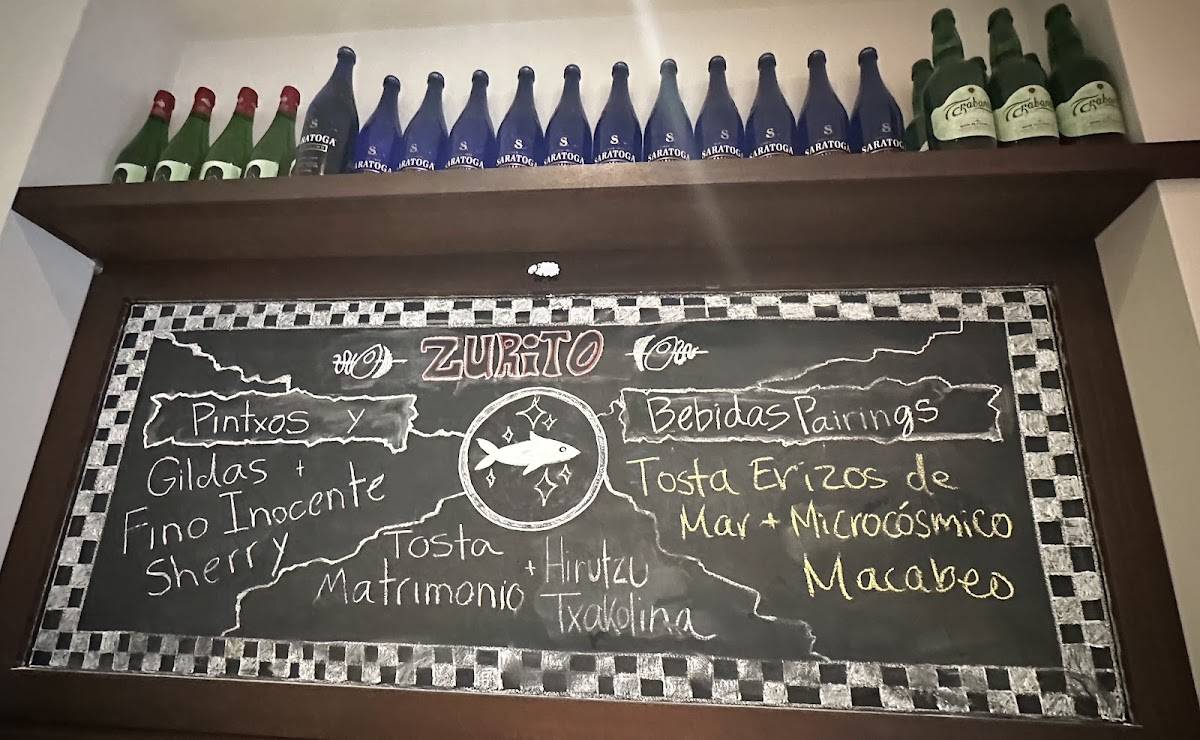 SARATOGA
S
SARATOGA
S
SARATOGA
S
SARATOGA
S
SARATOGA
S
SARATOGA
S
SARATOGA
S
SARATOGA
S
SARATOGA
S
SARATOGA
S
SARATOGA
S
SARATOGA
Trabanco
Trabanco
Trabanco
ZURITO
Pintxos y
Bebidas Pairings
Gildas +
Fino Inocente
Sherry
Tosta
Matrimonio
+ Hirutzu
Txakolina
Tosta Erizos de
Mar + Microcósmico
Macabeo